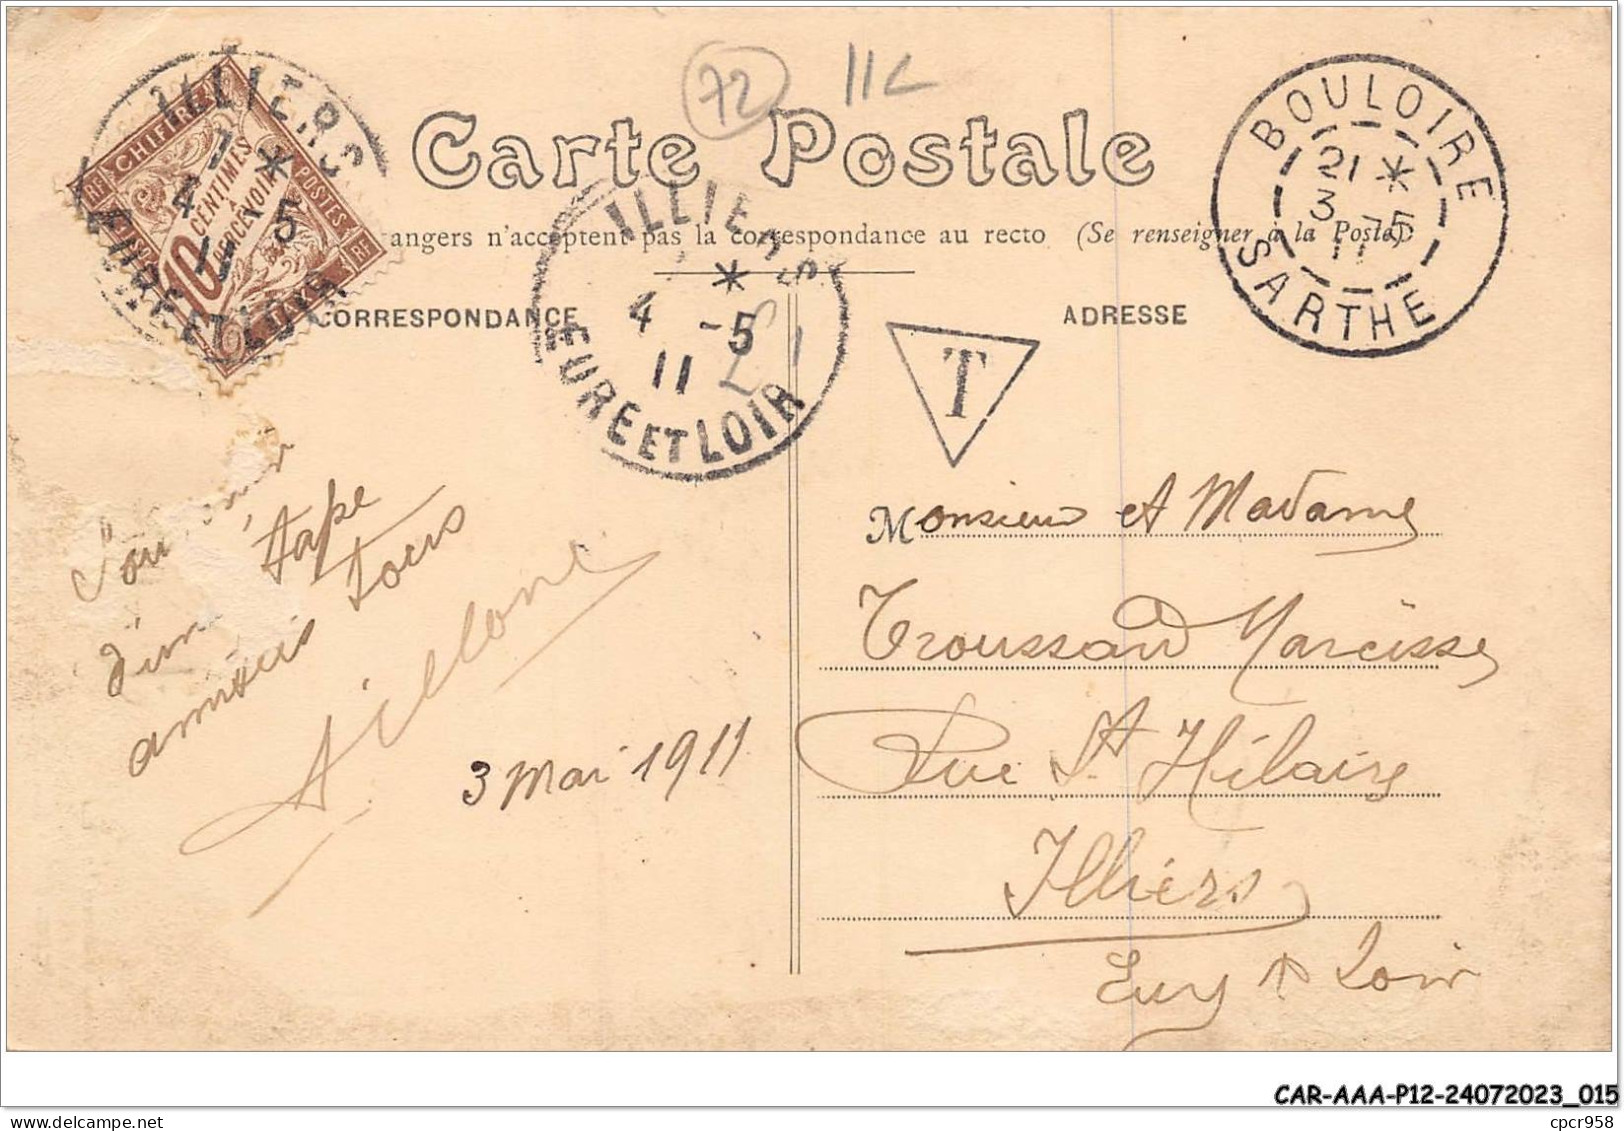 72
11 L
Carte Postale
angers n'acceptent pas la correspondance au recto (Se renseigner à la Poste)
CORRESPONDANCE
ADRESSE
ILLIERS
7 *
4 -5
11
EURE ET LOIR
RF
CHIFFRE
POSTES
RF
10 CENTIMES
A
PERCEVOIR
TAXE
ILLIERS
*
4 -5
11
EURE ET LOIR
BOULOIRE
21 *
3 -5
11
SARTHE
T
Souvenir
d'une étape
amitiés à tous
3 Mai 1911
Monsieur et Madame
Troussard Narcisse
Rue St Hilaire
Illiers
Eure et Loir
CAR-AAA-P12-24072023_015
delcampe.net
cpcr958